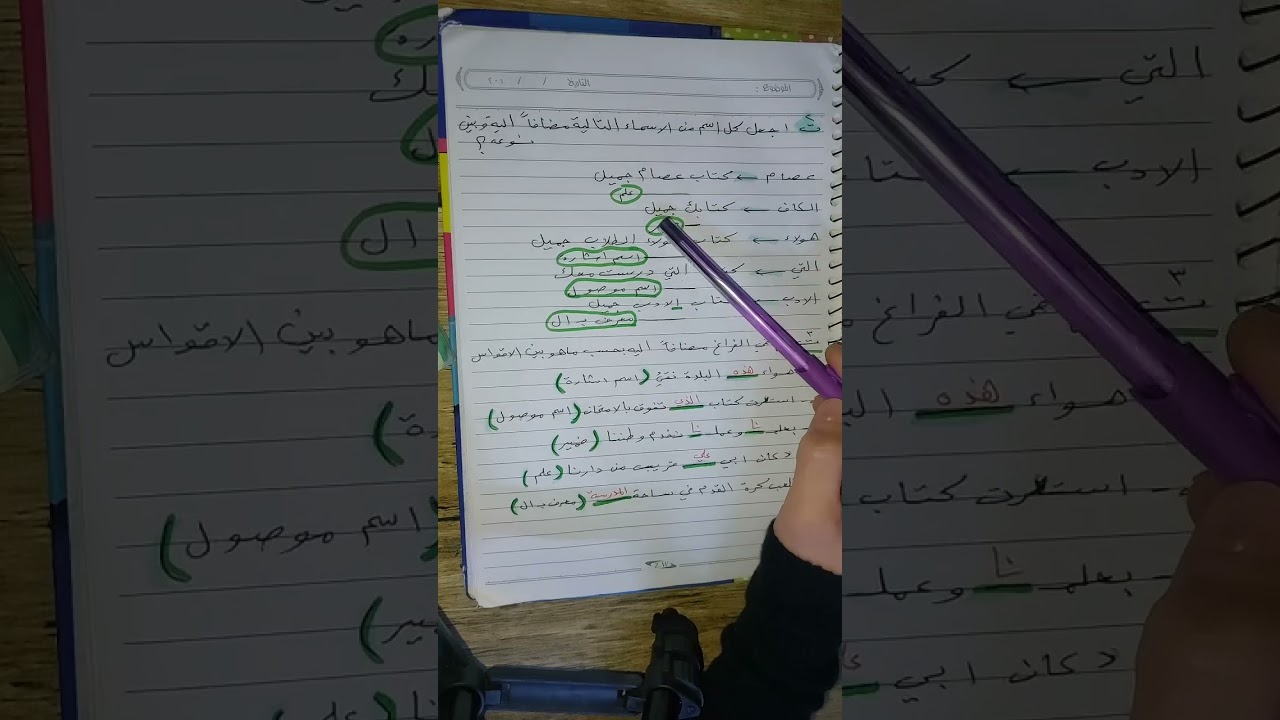 الموضوع : التاريخ / / ٢٠
ت٢ اجعل كل اسم من الاسماء التالية مضافاً اليه وبين
نوعه ؟
عصام ← كتاب عصام جميل
علم
الكاف ← كتابك جميل
هولاء ← كتاب الطلاب جميل
اسم اشاره
التي ← التي درست معك
اسم موصول
الادب ← كتاب الادب جميل
معرف بـ ال
ت٣ في الفراغ مضافاً اليه بحسب ماهو بين الاقواس
هواء هذه البلدة نقي (اسم اشارة)
- استعرت كتاب الذي تفوق بالامتحان (اسم موصول)
- بعلمنا وعملنا نتقدم وطننا (ضمير)
دكان ابي علي قريب من دارنا (علم)
كرة القدم في ساحة المدرسة (معرف بـ ال)